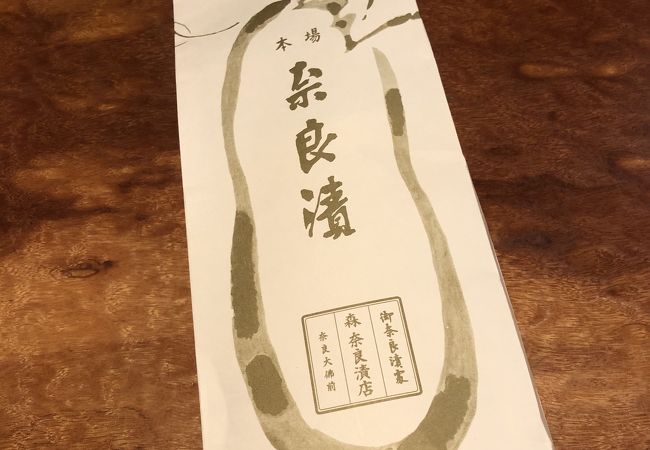 本場
奈良漬
御奈良漬家
森奈良漬店
奈良大佛前